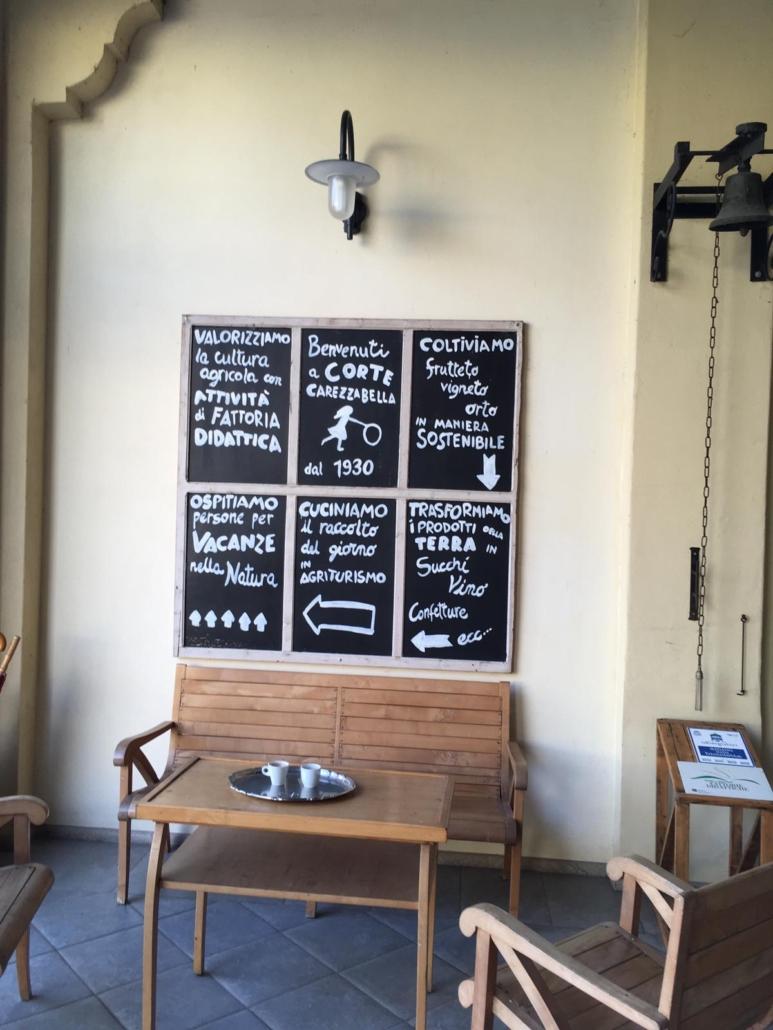 VALORIZZIAMO
la cultura
agricola con
ATTIVITÀ
di FATTORIA
DIDATTICA
Benvenuti
a CORTE
CAREZZABELLA
dal 1930
COLTIVIAMO
frutteto
vigneto
orto
IN MANIERA
SOSTENIBILE
OSPITIAMO
persone per
VACANZE
nella Natura
CUCINIAMO
il raccolto
del giorno
IN
AGRITURISMO
TRASFORMIAMO
i PRODOTTI DELLA
TERRA IN
Succhi
Vino
Confetture
ecc...